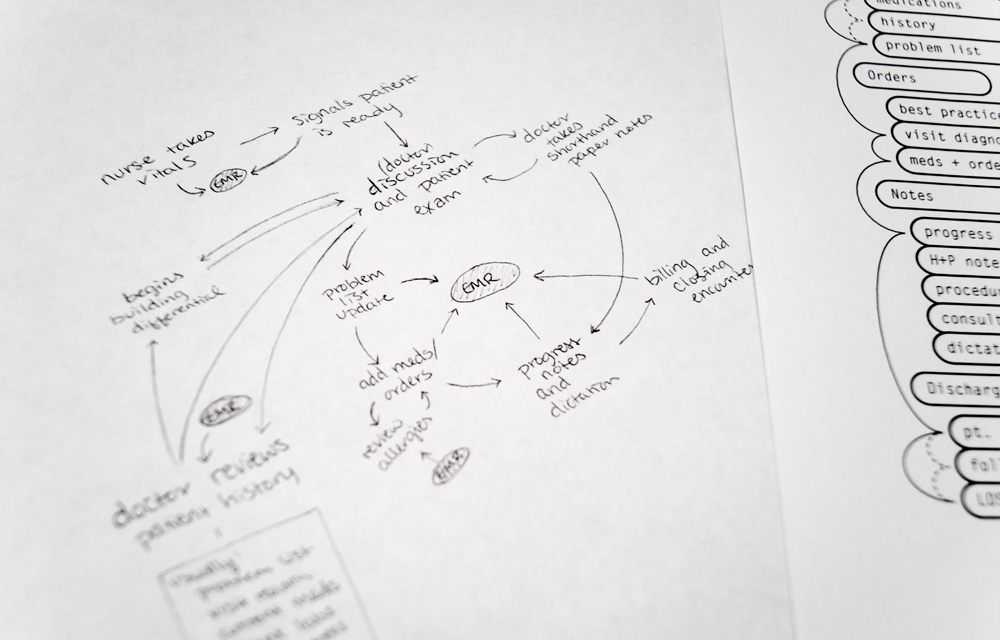 nurse takes
vitals
EMR
signals patient
is ready
(doctor
discussion
and patient
exam
doctor
takes
shorthand
paper notes
begins
building
differential
problem
list
update
EMR
billing and
closing
encounter
add meds/
orders
progress
notes
and
dictation
review
allergies
EMR
EMR
doctor reviews
patient history
usually:
problem list
medications
history
problem list
Orders
best practice
visit diagno
meds + orde
Notes
progress
H+P note
procedur
consult
dictat
Discharg
pt.